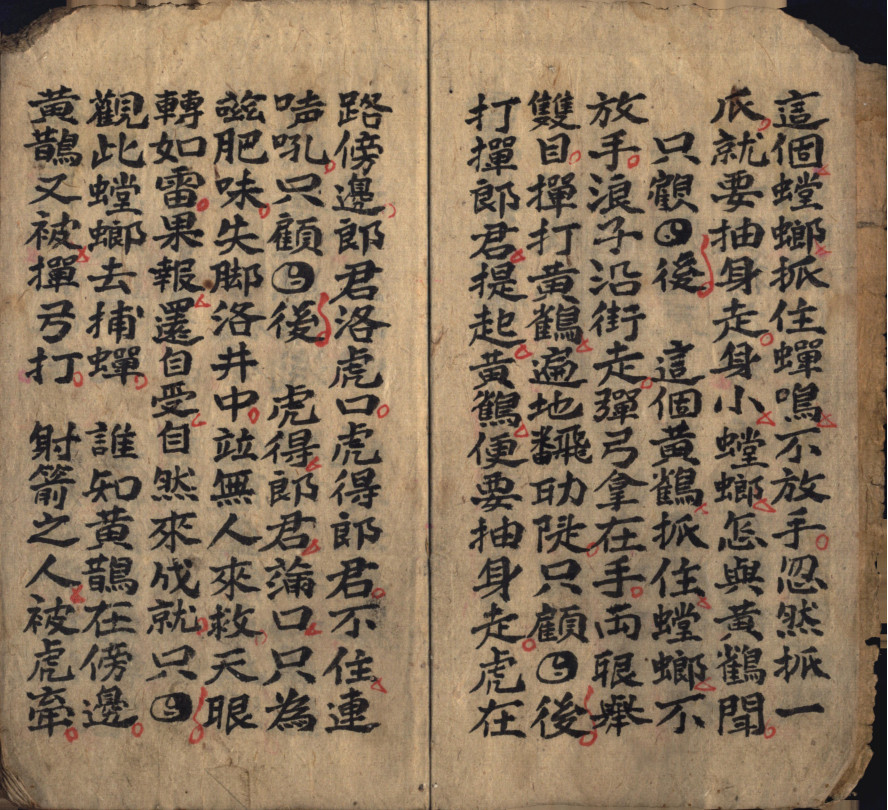 這個螳螂抓住蟬鳴不放手忽然抓一
爪就要抽身走身小螳螂怎與黃鶴聞
只顧☯後　這個黃鶴抓住螳螂不
放手浪子沿街走彈弓拿在手両眼舉
雙目撣打黃鶴遍地飜陡只顧☯後
打撣郎君提起黃鶴便要抽身走虎在
路傍邊郎君洛虎口虎得郎君不住連
吼只顧☯後　虎得郎君蒲口只為
嗞肥味失脚洛井中竝無人來救天眼
轉如雷果報還自受自然來成就只☯
觀此螳螂去捕蟬　誰知黃鵲在傍邊
黃鵲又被撣弓打　射箭之人被虎牽